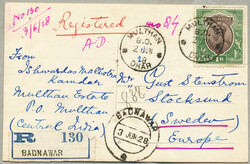 No 130
3/6/28
Registered
A.D.
no 84
MULTHAN
B.O.
2 JUN
28
DHAR
From
Ishwardas Malhotra
Ramdah
Multhan Estate
P.O. Multhan
(Central India)
Post Stenström
Stocksund
Sweden
Europe
84
R 130
BADNAWAR
BADNAWAR
3 JUN 28